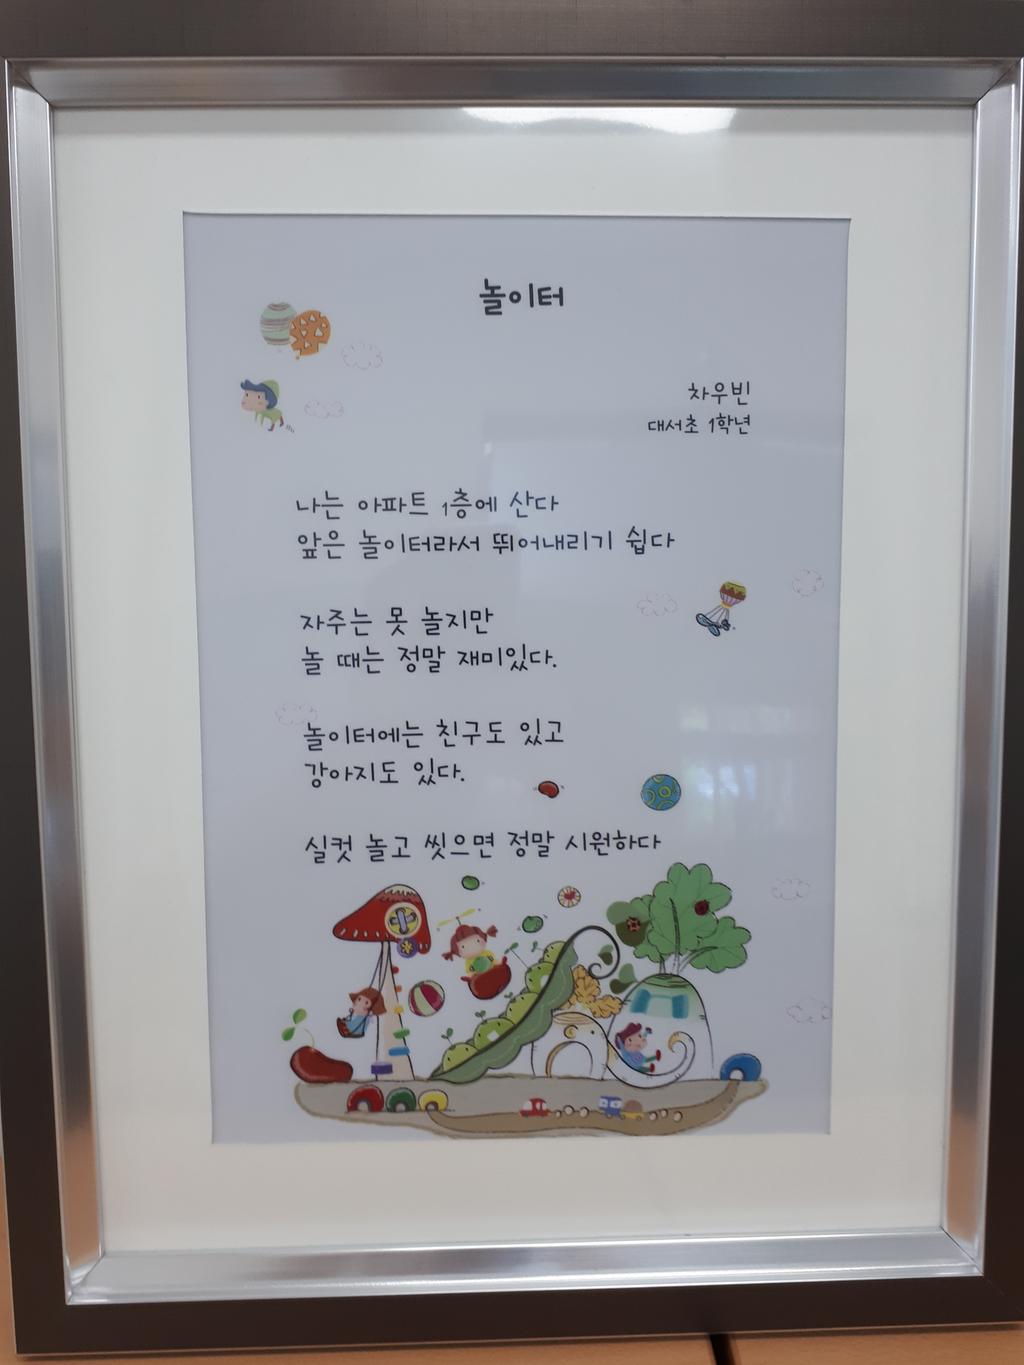 놀이터
차우빈
대서초 1학년
나는 아파트 1층에 산다
앞은 놀이터라서 뛰어내리기 쉽다
자주는 못 놀지만
놀 때는 정말 재미있다.
놀이터에는 친구도 있고
강아지도 있다.
실컷 놀고 씻으면 정말 시원하다